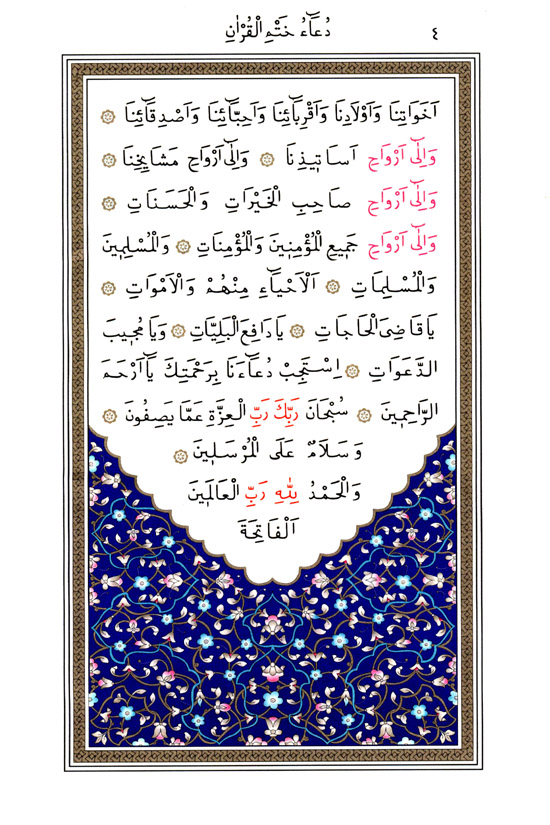 دُعَٓاءُ خَتْمِ الْقُرْاٰنِ
٤
اَخَوَاتِنَا وَاَوْلَادِنَا وَاَقْرِبَٓائِنَا وَاَحِبَّٓائِنَا وَاَصْدِقَٓائِنَا
وَاِلٰٓى اَرْوَاحِ اَسَاتِيذِنَا ۞ وَاِلٰٓى اَرْوَاحِ مَشَايِخِنَا ۞
وَاِلٰٓى اَرْوَاحِ صَاحِبِ الْخَيْرَاتِ وَالْحَسَنَاتِ ۞
وَاِلٰٓى اَرْوَاحِ جَمِيعِ الْمُؤْمِنِينَ وَالْمُؤْمِنَاتِ ۞ وَالْمُسْلِمِينَ
وَالْمُسْلِمَاتِ ۞ اَلْاَحْيَٓاءِ مِنْهُمْ وَالْاَمْوَاتِ ۞
يَا قَاضِىَ الْحَاجَاتِ ۞ يَا دَافِعَ الْبَلِيَّاتِ ۞ وَيَا مُجِيبَ
الدَّعَوَاتِ ۞ اِسْتَجِبْ دُعَٓاءَنَا بِرَحْمَتِكَ يَٓا اَرْحَمَ
الرَّاحِمِينَ ۞ سُبْحَانَ رَبِّكَ رَبِّ الْعِزَّةِ عَمَّا يَصِفُونَ ۞
وَسَلَامٌ عَلَى الْمُرْسَلِينَ ۞
وَالْحَمْدُ لِلّٰهِ رَبِّ الْعَالَمِينَ
اَلْفَاتِحَةَ